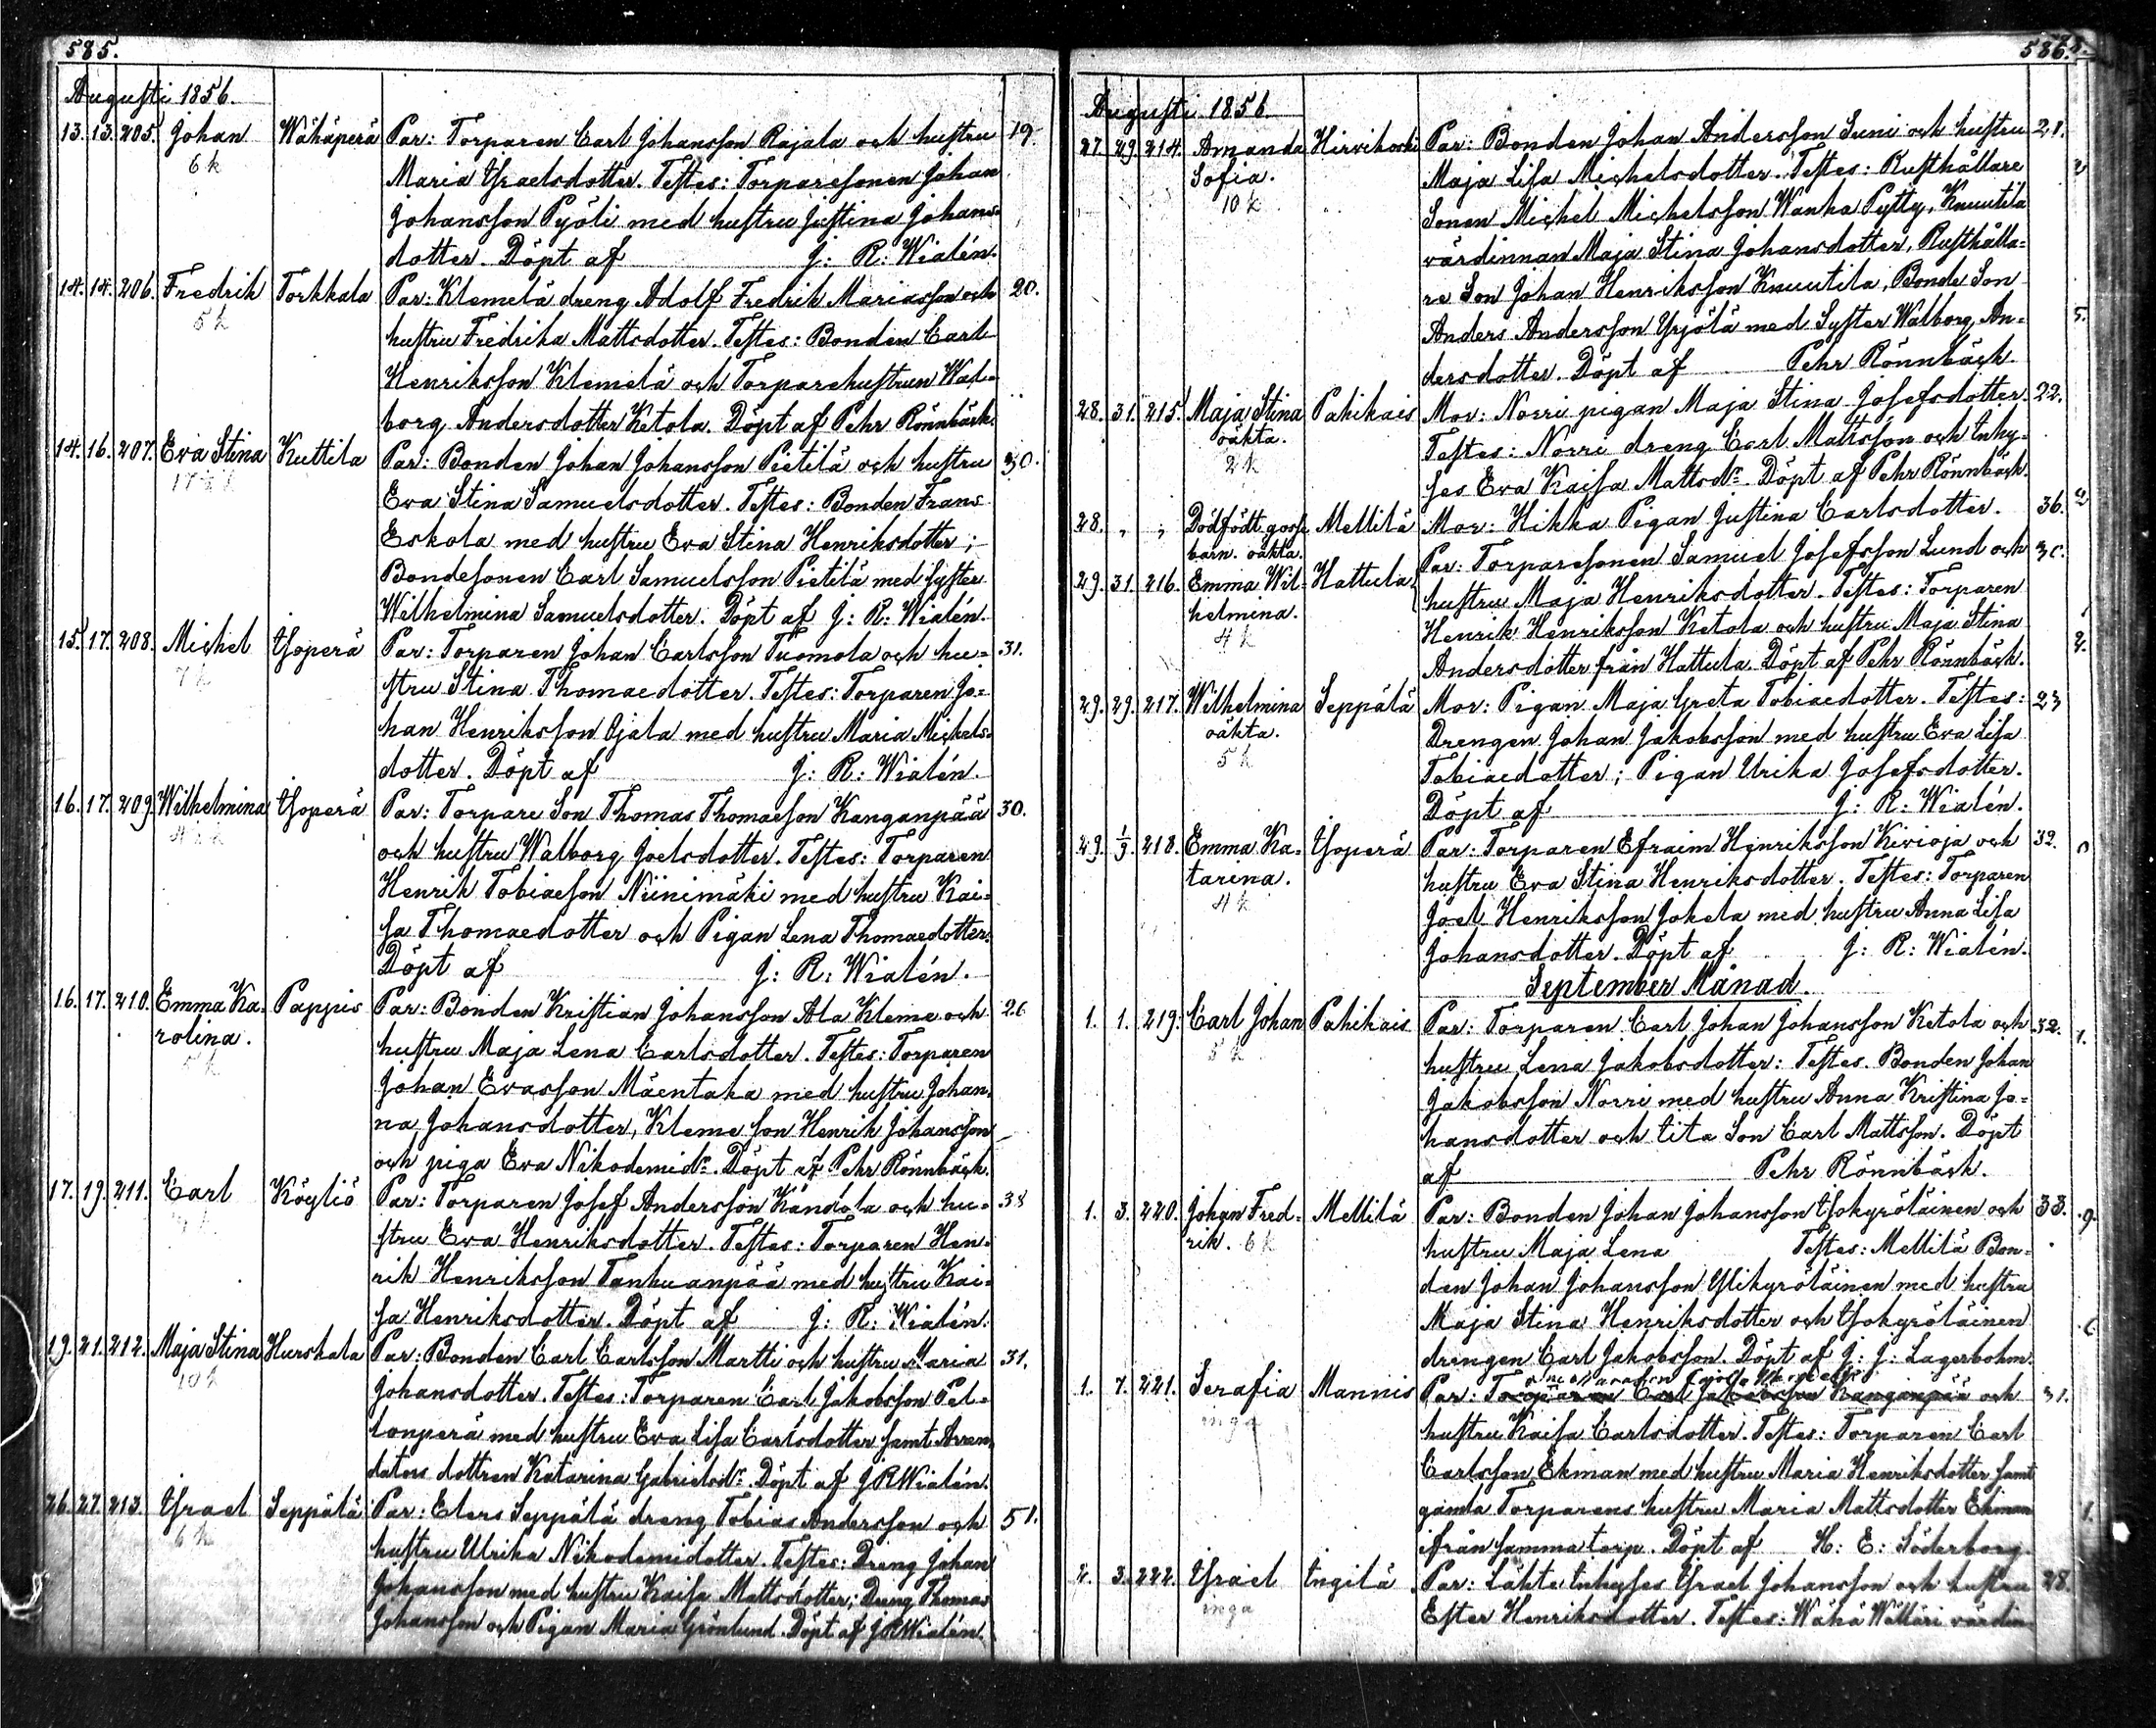 585.
Augusti 1856.
13. 13. 205. Johan Wähäperä Par: Torparen Carl Johansson Rajala och hustru 19.
6 k Maria Israelsdotter. Testes: Torparesonen Johan
Johansson Pyöli med hustru Justina Johans-
dotter. Döpt af J: R: Wialén.
14. 14. 206. Fredrik Torkkala Par: Klemelä dreng Adolf Fredrik Mariasson och 20.
5 k hustru Fredrika Mattsdotter. Testes: Bonden Carl
Henriksson Klemelä och Torparehustrun Wal-
borg Andersdotter Ketola. Döpt af Pehr Rönnbäck.
14. 16. 207. Eva Stina Kuttila Par: Bonden Johan Johansson Pietilä och hustru 30.
Eva Stina Samuelsdotter. Testes: Bonden Frans
Eskola med hustru Eva Stina Henriksdotter;
Bondesonen Carl Samuelsson Pietilä med syster
Wilhelmina Samuelsdotter. Döpt af J: R: Wialén.
15. 17. 208. Michel Isoperä Par: Torparen Johan Carlsson Tuomola och hu- 31.
7 k stru Stina Thomaedotter. Testes: Torparen Jo-
han Henriksson Ojala med hustru Maria Michels-
dotter. Döpt af J: R: Wialén.
16. 17. 209. Wilhelmina Isoperä Par: Torpare Son Thomas Thomaeson Kanganpää 30.
och hustru Walborg Joelsdotter. Testes: Torparen
Henrik Tobiaeson Niinimäki med hustru Kai-
sa Thomaedotter och Pigan Lena Thomaedotter.
Döpt af J: R: Wialén.
16. 17. 210. Emma Ka- Pappis Par: Bonden Kristian Johansson Ala Kleme och 26
rolina. hustru Maja Lena Carlsdotter. Testes: Torparen
5 k Johan Evasson Mäentaka med hustru Johan-
na Johansdotter, Kleme son Henrik Johansson
och piga Eva Nikodemidr. Döpt af Pehr Rönnbäck.
17. 19. 211. Carl Köyliö Par: Torparen Josef Andersson Kandola och hu- 38
stru Eva Henriksdotter. Testes: Torparen Hen-
rik Henriksson Tanhuanpää med hustru Kai-
sa Henriksdotter. Döpt af J: R: Wialén.
19. 21. 212. Maja Stina Hurskala Par: Bonden Carl Carlsson Martti och hustru Maria 31.
10 k Johansdotter. Testes: Torparen Carl Jakobsson Pel-
tonperä med hustru Eva Lisa Carlsdotter samt Arren-
dators dottren Katarina Gabrielsdr. Döpt af J R Wialén.
26. 27. 213. Israel Seppälä Par: Elers Seppälä dreng Tobias Andersson och 51.
6 k hustru Ulrika Nikodemidotter. Testes: Dreng Johan
Johansson med hustru Kaisa Mattsdotter; Dreng Thomas
Johansson och Pigan Maria Grönlund. Döpt af J R Wialén.
586.
Augusti 1856.
27. 29. 214. Amanda Hirvikoski Par: Bonden Johan Andersson Suni och hustru 21.
Sofia. Maja Lisa Michelsdotter. Testes: Rusthållare
10 k Sonen Michel Michelsson Wanha Pytty, Knuutila
värdinnan Maja Stina Johansdotter, Rusthålla-
re Son Johan Henriksson Knuutila, Bonde Son
Anders Andersson Yrjölä med Syster Walborg An-
dersdotter. Döpt af Pehr Rönnbäck.
28. 31. 215. Maja Stina Pahikais Mor: Norri pigan Maja Stina Josefsdotter. 22.
oäkta. Testes: Norri dreng Carl Mattsson och Inhy-
2 k ses Eva Kaisa Mattsdr. Döpt af Pehr Rönnbäck.
28. " " Dödfödt gosse Mellilä Mor: Hikka Pigan Justina Carlsdotter. 36.
barn. oäkta.
29. 31. 216. Emma Wil- Hattula Par: Torparesonen Samuel Josefsson Lund och 30.
helmina. hustru Maja Henriksdotter. Testes: Torparen
4 k Henrik Henriksson Ketola och hustru Maja Stina
Andersdotter från Hattula. Döpt af Pehr Rönnbäck.
29. 29. 217. Wilhelmina Seppälä Mor: Pigan Maja Greta Tobiaedotter. Testes: 23
oäkta. Drengen Johan Jakobsson med hustru Eva Lisa
5 k Tobiaedotter; Pigan Urika Josefsdotter.
Döpt af J: R: Wialén.
29. 1/9. 218. Emma Ka- Isoperä Par: Torparen Efraim Henriksson Kivioja och 32.
tarina. hustru Eva Stina Henriksdotter. Testes: Torparen
4 k Joel Henriksson Jokela med hustru Anna Lisa
Johansdotter. Döpt af J: R: Wialén.
September Månad.
1. 1. 219. Carl Johan Pahikais Par: Torparen Carl Johan Johansson Ketola och 32.
5 k hustru Lena Jakobsdotter: Testes. Bonden Johan
Jakobsson Norri med hustru Anna Kristina Jo-
hansdotter och Lita Son Carl Mattsson. Döpt
af Pehr Rönnbäck.
1. 3. 220. Johan Fred- Mellilä Par: Bonden Johan Johansson Isokyröläinen och 33.
rik. 6 k hustru Maja Lena Testes: Mellilä Bon-
den Johan Johansson Ylikyröläinen med hustru
Maja Stina Henriksdotter och Isokyröläinen
drengen Carl Jakobsson. Döpt af J: J: Lagerbohm.
1. 7. 221. Serafia Mannis Par: Torparen Carl Jakobsson Kanganpää och 31.
inga hustru Kaisa Carlsdotter. Testes: Torparen Carl
Carlsson Ekman med hustru Maria Henriksdotter samt
gamla Torparens hustru Maria Mattsdotter Ekman
ifrån samma torp. Döpt af H: E: Söderborg.
2. 3. 222. Israel Engilä Par: Lähte Inhyses Israel Johansson och hustru 28.
inga Ester Henriksdotter. Testes: Wähä Wällari värdin-